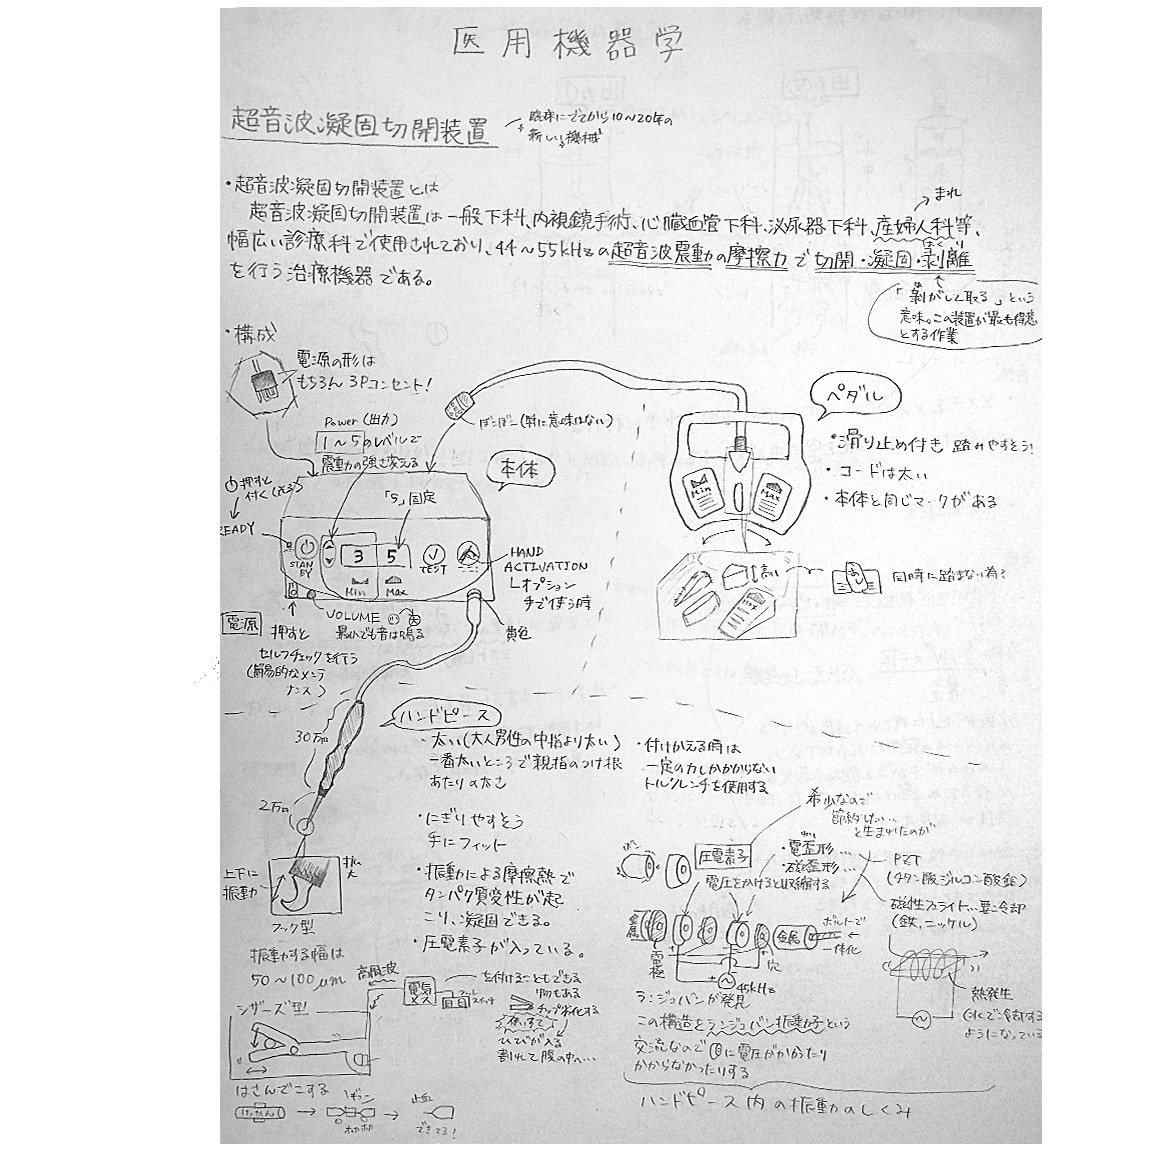 医用機器学
超音波凝固切開装置
臨床にでてから10～20年の
新しい機械
・超音波凝固切開装置とは
超音波凝固切開装置は一般下科、内視鏡手術、心臓血管下科、泌尿器下科、産婦人科等、
まれ
幅広い診療科で使用されており、44～55kHzの超音波震動の摩擦力で切開・凝固・剥離
はくり
を行う治療機器である。
「剥がして取る」という
意味。この装置が最も得意
とする作業
・構成
電源の形は
もちろん3Pコンセント!
Power(出力)
1～5のレベルで
震動の強さ変える
ぼこぼこ(特に意味はない)
本体
「5」固定
押すと
付く(光る)
READY
STAN
BY
3 5
Min Max
TEST
HAND
ACTIVATION
オプション
手で使う時
電源
押すと
セルフチェックを行う
(簡易的なメンテ
ナンス)
VOLUME
最小でも音は鳴る
黄色
ペダル
・滑り止め付き 踏みやすそう!
・コードは太い
・本体と同じマークがある
Min Max
高い
同時に踏まない為?
ハンドピース
・太い(大人男性の中指より太い)
一番太いところで親指のつけ根
あたりの太さ
・にぎりやすそう
手にフィット
・振動による摩擦熱で
タンパク質変性が起
こり、凝固できる。
・圧電素子が入っている。
・付けかえる時は
一定の力しかかからない
トルクレンチを使用する
30万円
2万円
上下に
振動
拡大
フック型
振動する幅は
50～100μm
シザーズ型
高周波
電気
メス
フットスイッチ
を付けることもできる
物もある
チップ劣化する
使いすて
ひびが入る
割れて腹の中へ…
はさんでこする
けっかん
ギュッ
ポカポカ
止血
できてる!
希少なので
節約したい…
と生まれたのが
圧電素子
・電歪形…
・磁歪形…
電圧をかけると収縮する
PZT
(チタン酸ジルコン酸鉛)
磁性フェライト…要冷却
(鉄、ニッケル)
金属
金属
ボルトで
一体化
電極
穴
45kHz
ランジュバンが発見
この構造をランジュバン振動子という
交流なので に電圧がかかったり
かからなかったりする
熱発生
(水で冷却する
ようになっている
ハンドピース内の振動のしくみ